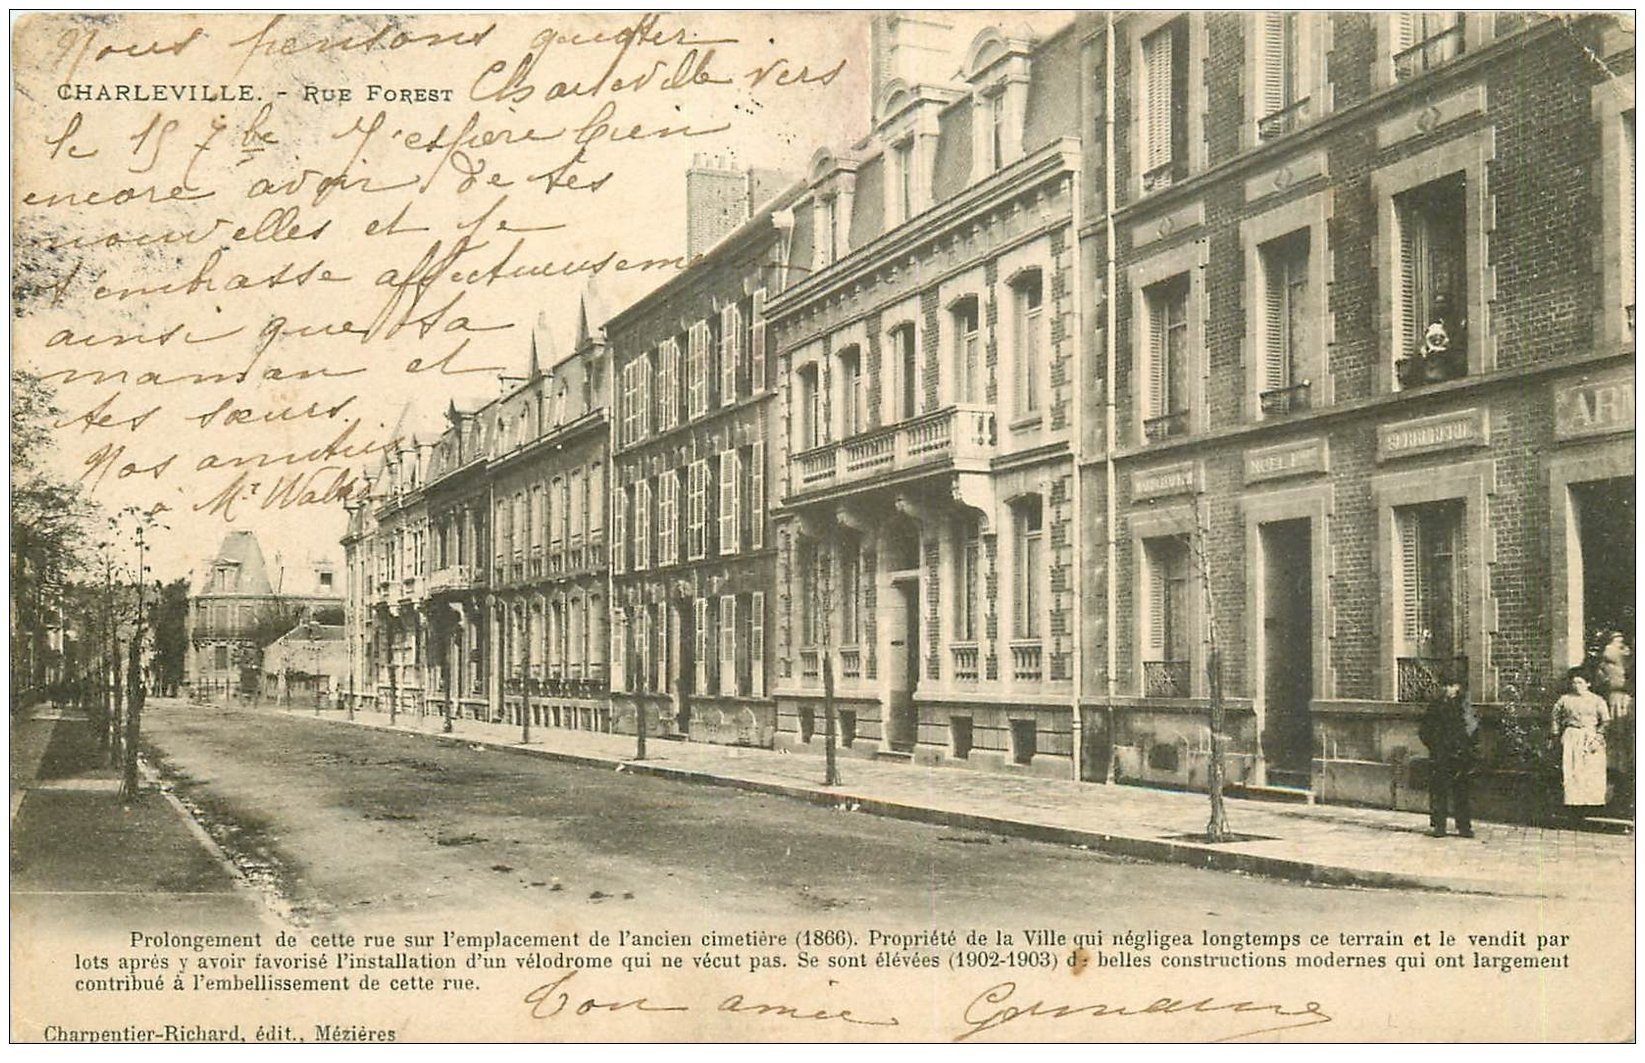 Nous pensons quitter
CHARLEVILLE. - RUE FOREST Charleville vers
le 15 7bre J'espère bien
encore avoir de tes
nouvelles et je
t'embrasse affectueusement
ainsi que ta
maman et
tes sœurs.
Nos amitiés
à Mr
SERRURERIE
NOEL
AR
Prolongement de cette rue sur l'emplacement de l'ancien cimetière (1866). Propriété de la Ville qui négligea longtemps ce terrain et le vendit par
lots après y avoir favorisé l'installation d'un vélodrome qui ne vécut pas. Se sont élévées (1902-1903) de belles constructions modernes qui ont largement
contribué à l'embellissement de cette rue.
Ton amie Germaine
Charpentier-Richard, édit., Mézières